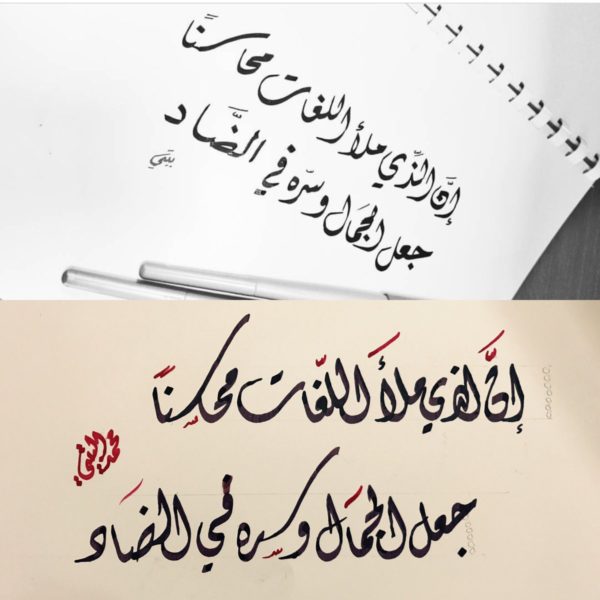 إنَّ الَّذي ملأ اللغات محاسنًا
جعل الجَمال وسرّه في الضَّاد
إنَّ لذي ملأَ اللغّات محاسِنًا
جعل الجمَال وسِره في الضَاد